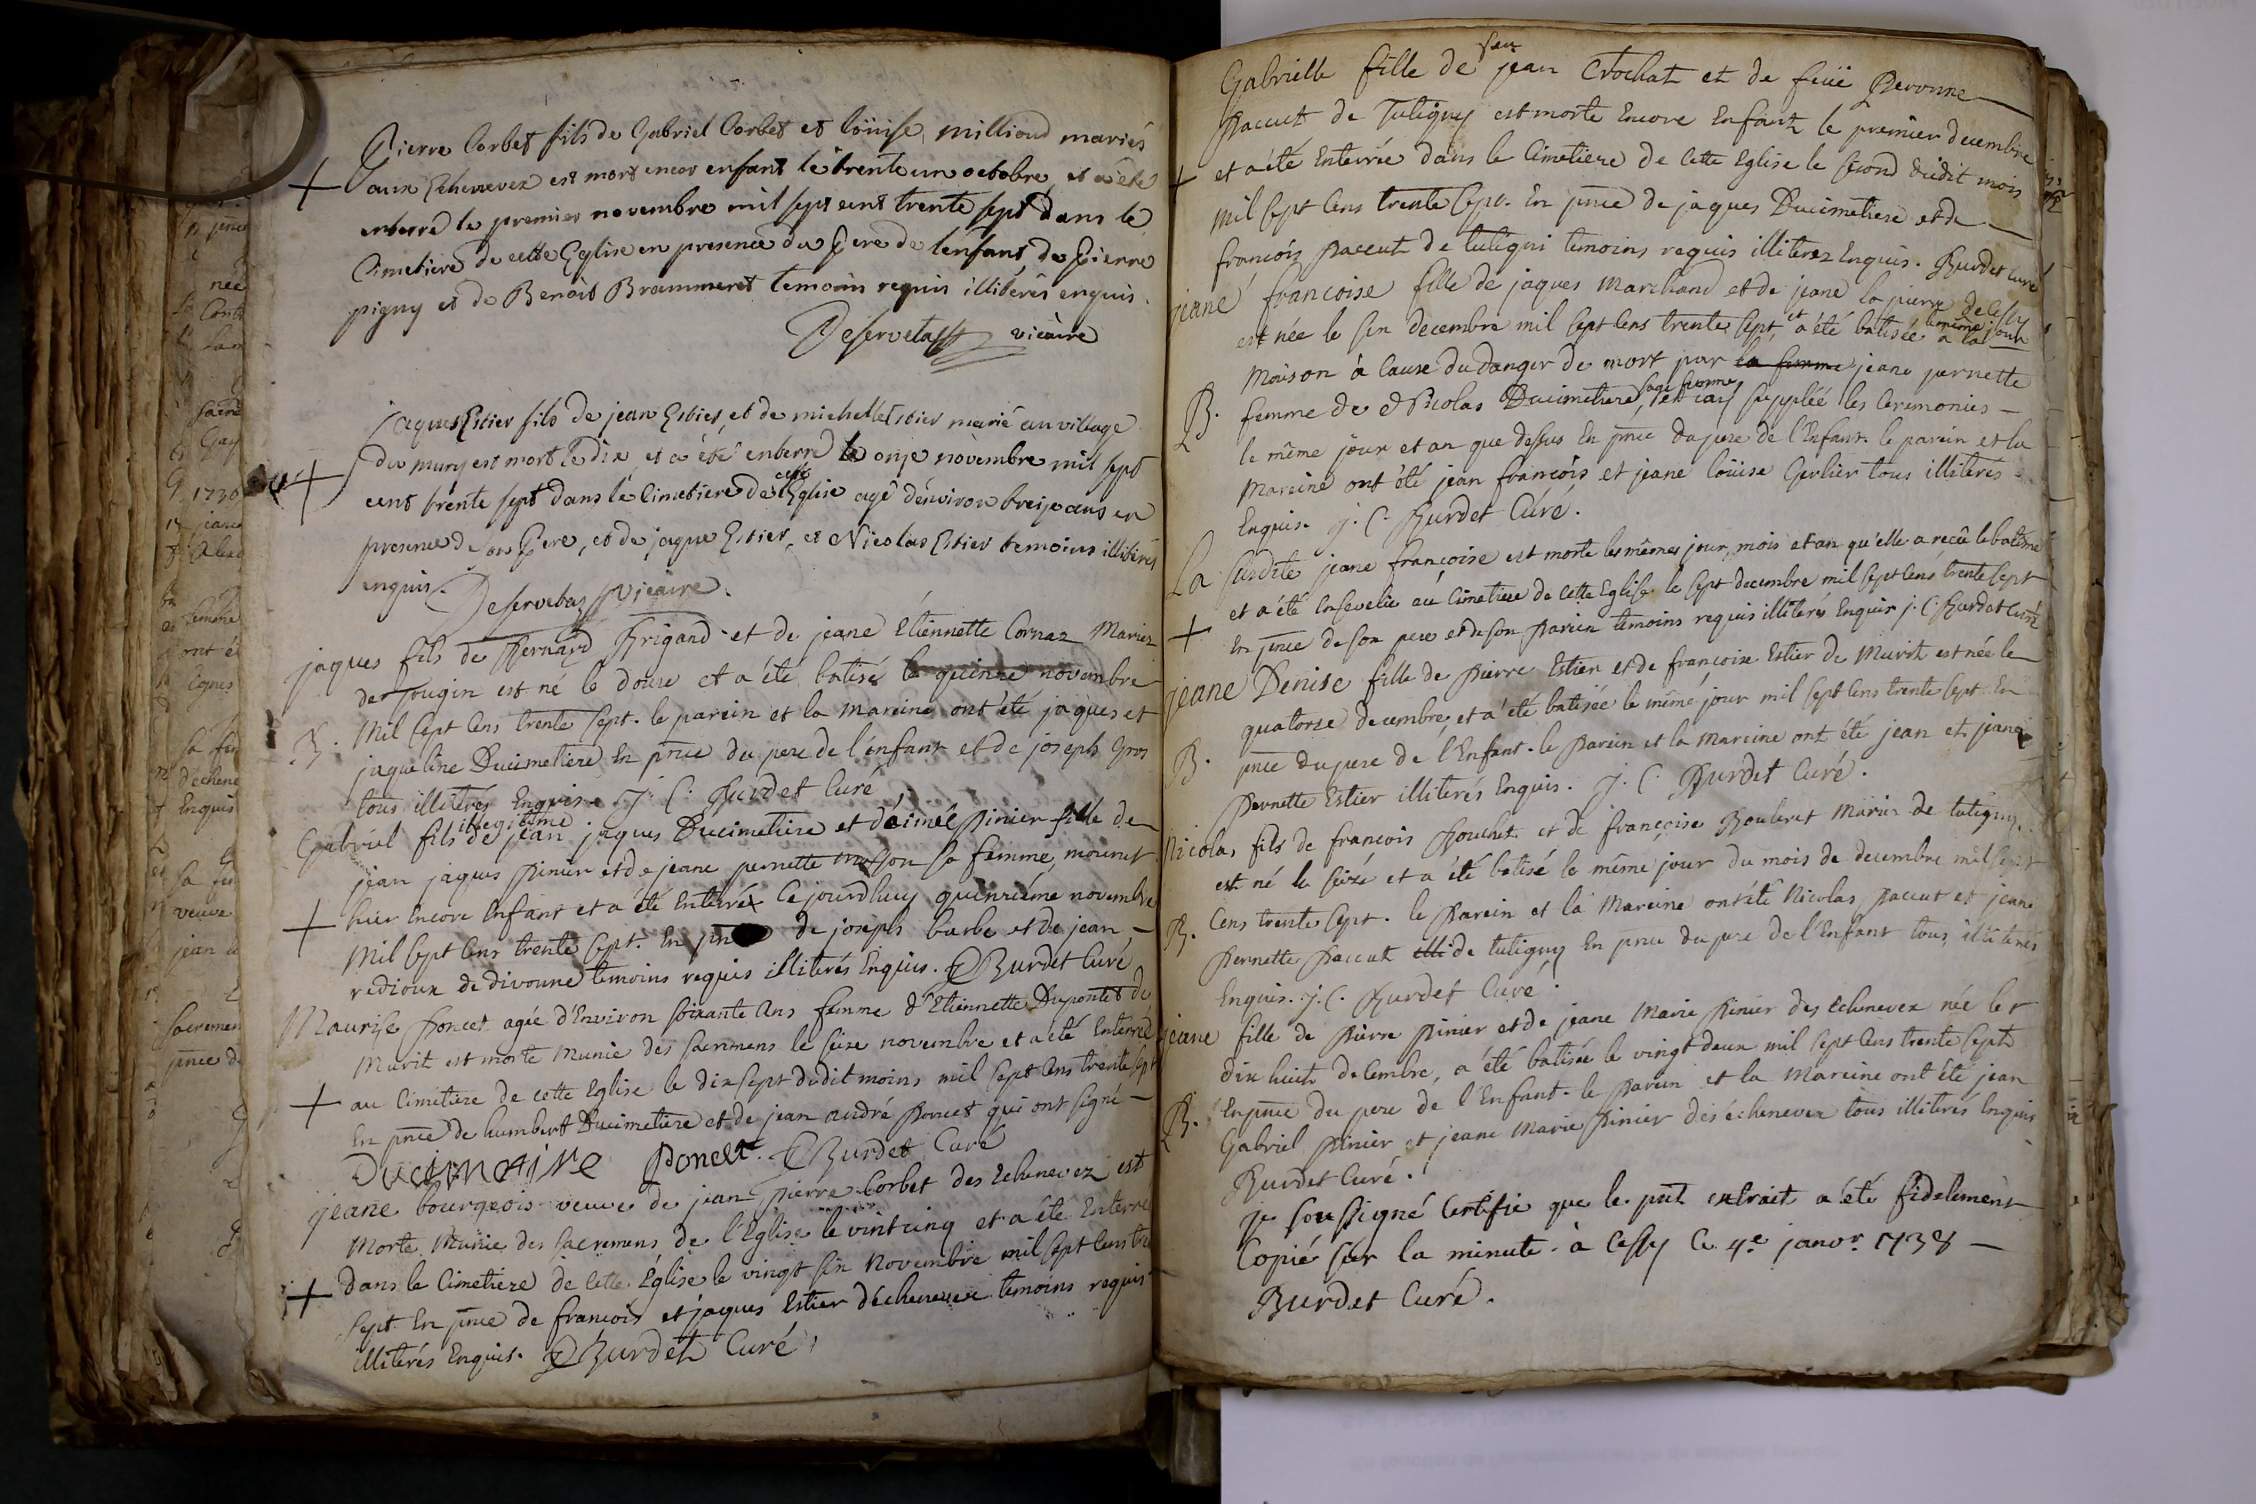 Pierre Corbet fils de Gabriel Corbet et Loüise milliond mariés
aux Echenevex est mort encor enfant le trente un octobre, et a été
enterré le premier novembre mil sept cent trente sept dans le
Cimetiere de cette Eglise en presence du Pere de lenfant de Pierre
pigny et de Benoit Brammeret temoins requis illiterés enquis.
Deservetaz vicaire
jaques Estier fils de jean Estier, et de michelle Estier marié au village
du mury est mort le dix et a été enterré le onze novembre mil sept
cent trente sept dans le Cimetiere de cette Eglise agé d'environ treize ans en
presence de son Pere, et de jaque Estier, et Nicolas Estier temoins illiterés
enquis. Deservetaz Vicaire.
jaques fils de Bernard Brigand et de jeane Etiennette Cornaz Mariez
de Sougin est né le douze et a été batisé le quinze novembre
B. Mil sept Cens trente sept. le parein et la mareine ont été jaques et
jaqueline Ducimetiere En pnce du pere de l'enfant et de joseph Gros
tous illiterés Enquis. J. C. Burdet Curé
Gabriel fils illegitime de jean jaques Ducimetiere et d'aimée Pinier fille de
jean jaques Pinier et de jeane pernette sa femme, mourut
hier Encore Enfant et a été Enterré Ce jourdhuy quinzième novembre
Mil sept Cens trente sept. En de joseph barbe et de jean
redioux de divonne temoins requis illiterés Enquis. Burdet Curé
Maurise Poncet agée d'Environ soixante Ans femme d'Etiennette Dupontet de
Murit est morte Munie des Sacremens le seize novembre et a été Enterrée
au Cimetiere de cette Eglise le dix sept dudit moins mil sept Cens trente sept
En pnce de humbert Ducimetiere et de jean andré Poncet qui ont signé
Ducimatire Poncet. Burdet Curé
jeane bourgeois veuve de jean Pierre Corbet des Echenevez est
Morte Munie des Sacremens de l'Eglise le vintcinq et a été Enterré
dans le Cimetiere de Cette Eglise le vingt six Novembre mil sept Cens tre
sept. En pnce de francois et jaques Estier d'échenevex temoins requis
illiterés Enquis. Burdet Curé
Gabrielle fille de feu jean Crochat et de feüe Peronne
Paccut de Tutigny est morte Encore Enfant le premier decembre
et a été Enterrée dans le Cimetiere de Cette Eglise le second dudit mois
mil sept Cens trente sept. En pnce de jaques Ducimetiere et de
francois Paccut de tutigni temoins requis illiterez Enquis. Burdet Curé
jeane francoise fille de jaques Marchand et de jeane la pierre de Cessy
est née le six decembre mil sept Cens trente sept et a été batisée le même jour à la
Maison à Cause du danger de mort par la femme jeane pernette
B. femme de Nicolas Ducimetiere, sage femme, et j'ay suppléé les Ceremonies
le même jour et an que dessus En pnce du pere de l'Enfant. le parein et la
Mareine ont été jean francois et jeane Loüise Gerlier tous illiterés
Enquis. J. C. Burdet Curé.
La susdite jeane françoise est morte les mêmes jour, mois et an qu'elle a reçû le batême
et a été Ensevelie au Cimetiere de Cette Eglise le sept decembre mil sept Cens trente sept
En pnce de son pere et de son Parein temoins requis illiterés Enquis J. C. Burdet Curé
jeane Denise fille de Pierre Estier et de francoise Estier de Murit est née le
quatorze decembre, et a été batisée le même jour mil sept Cens trente sept En
B. pnce du pere de l'Enfant. le Parein et la Mareine ont été jean et jeane
Pernette Estier illiterés Enquis. J. C. Burdet Curé.
Nicolas fils de francois Bouchet et de françoise Bouleret Mariez de tutigny
est né le seize et a été batisé le même jour du mois de decembre mil sept
B. Cens trente sept. le Parein et la Mareine ont été Nicolas Paccut et jeane
Pernette Paccut de tutigny En pnce du pere de l'Enfant tous illiterés
Enquis. J. C. Burdet Curé.
jeane fille de Pierre Pinier et de jeane Marie Pinier des Echenevex née le
dix huit decembre, a été batisée le vingt deux mil sept Cens trente sept
B. En pnce du pere de l'Enfant. le Parein et la Mareine ont été jean
Gabriel Pinier et jeane Marie Pinier des échenevex tous illiterés Enquis
Burdet Curé.
je sousigné Certifie que le pnt extrait a été fidelement
Copié sur la minute. à Cessy Ce 4e janvr. 1738
Burdet Curé.